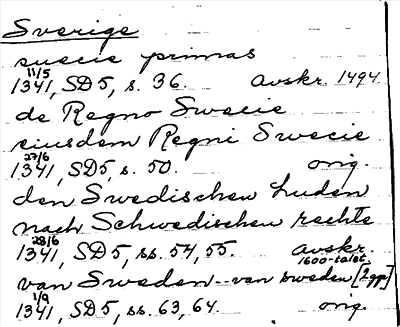 Sverige
suecie primas
11/5
1341, SD5, s. 36. Avskr. 1494.
de Regno Swecie
eiusdem Regni Swecie
27/6
1341, SD5, s. 50. orig.
den Swedischen luden
nach Schwedischen rechte
28/6
1341, SD5, ss. 54, 55. avskr. 1600-talet.
van Sweden -- van sweden [2 ggr]
1/9
1341, SD5, ss. 63, 64. orig.